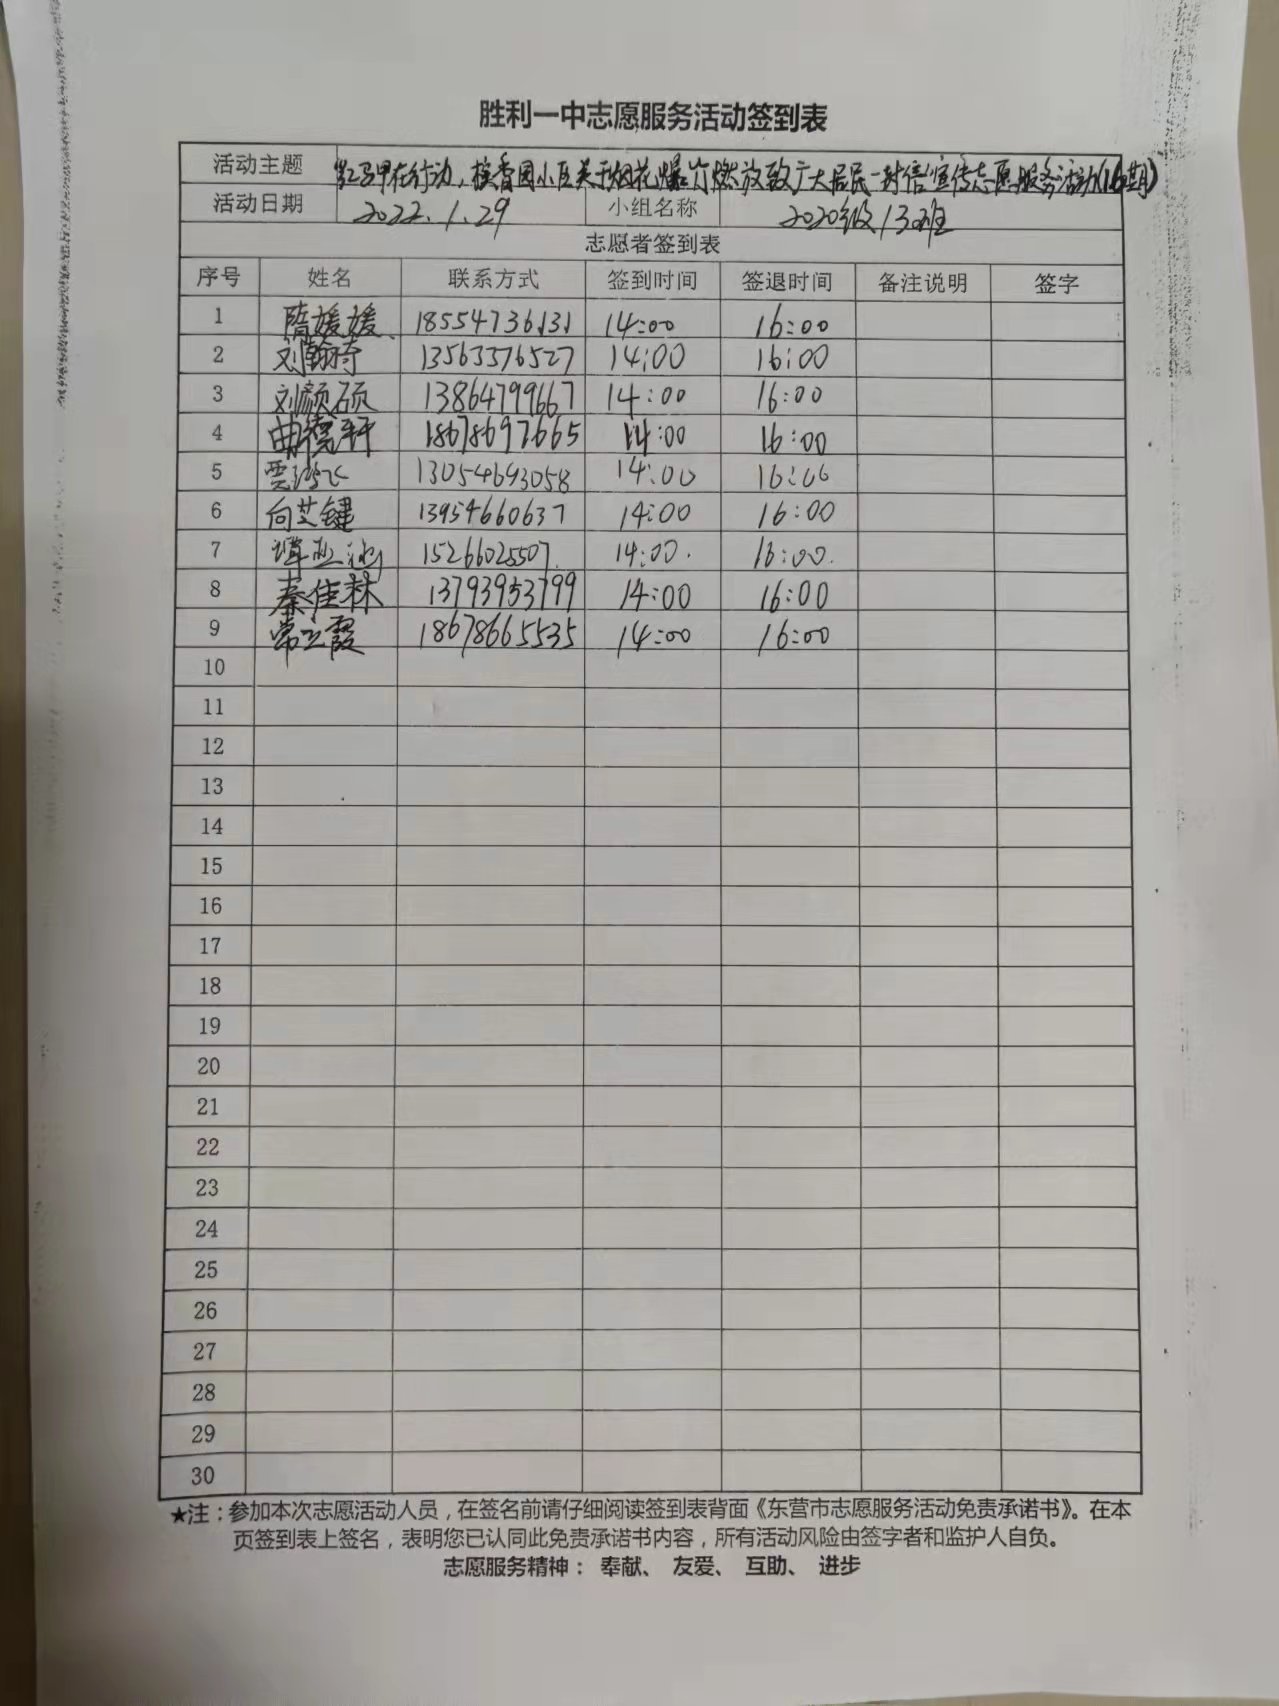 胜利一中志愿服务活动签到表
活动主题 红马甲在行动，槟香园小区关于烟花爆竹燃放致广大居民一封信宣传志愿服务活动(16期)
活动日期 2022.1.29 小组名称 2020级13班
志愿者签到表
序号 姓名 联系方式 签到时间 签退时间 备注说明 签字
1 隋媛媛 18554736131 14:00 16:00
2 刘翰琦 13563376527 14:00 16:00
3 刘颜硕 13864799667 14:00 16:00
4 曲德轩 18678697665 14:00 16:00
5 贾 13054693058 14:00 16:00
6 向艾键 13954660637 14:00 16:00
7 15266025507 14:00. 16:00.
8 秦佳林 13793953799 14:00 16:00
9 常立霞 18678665535 14:00 16:00
10
11
12
13
14
15
16
17
18
19
20
21
22
23
24
25
26
27
28
29
30
★注：参加本次志愿活动人员，在签名前请仔细阅读签到表背面《东营市志愿服务活动免责承诺书》。在本
页签到表上签名，表明您已认同此免责承诺书内容，所有活动风险由签字者和监护人自负。
志愿服务精神： 奉献、 友爱、 互助、 进步